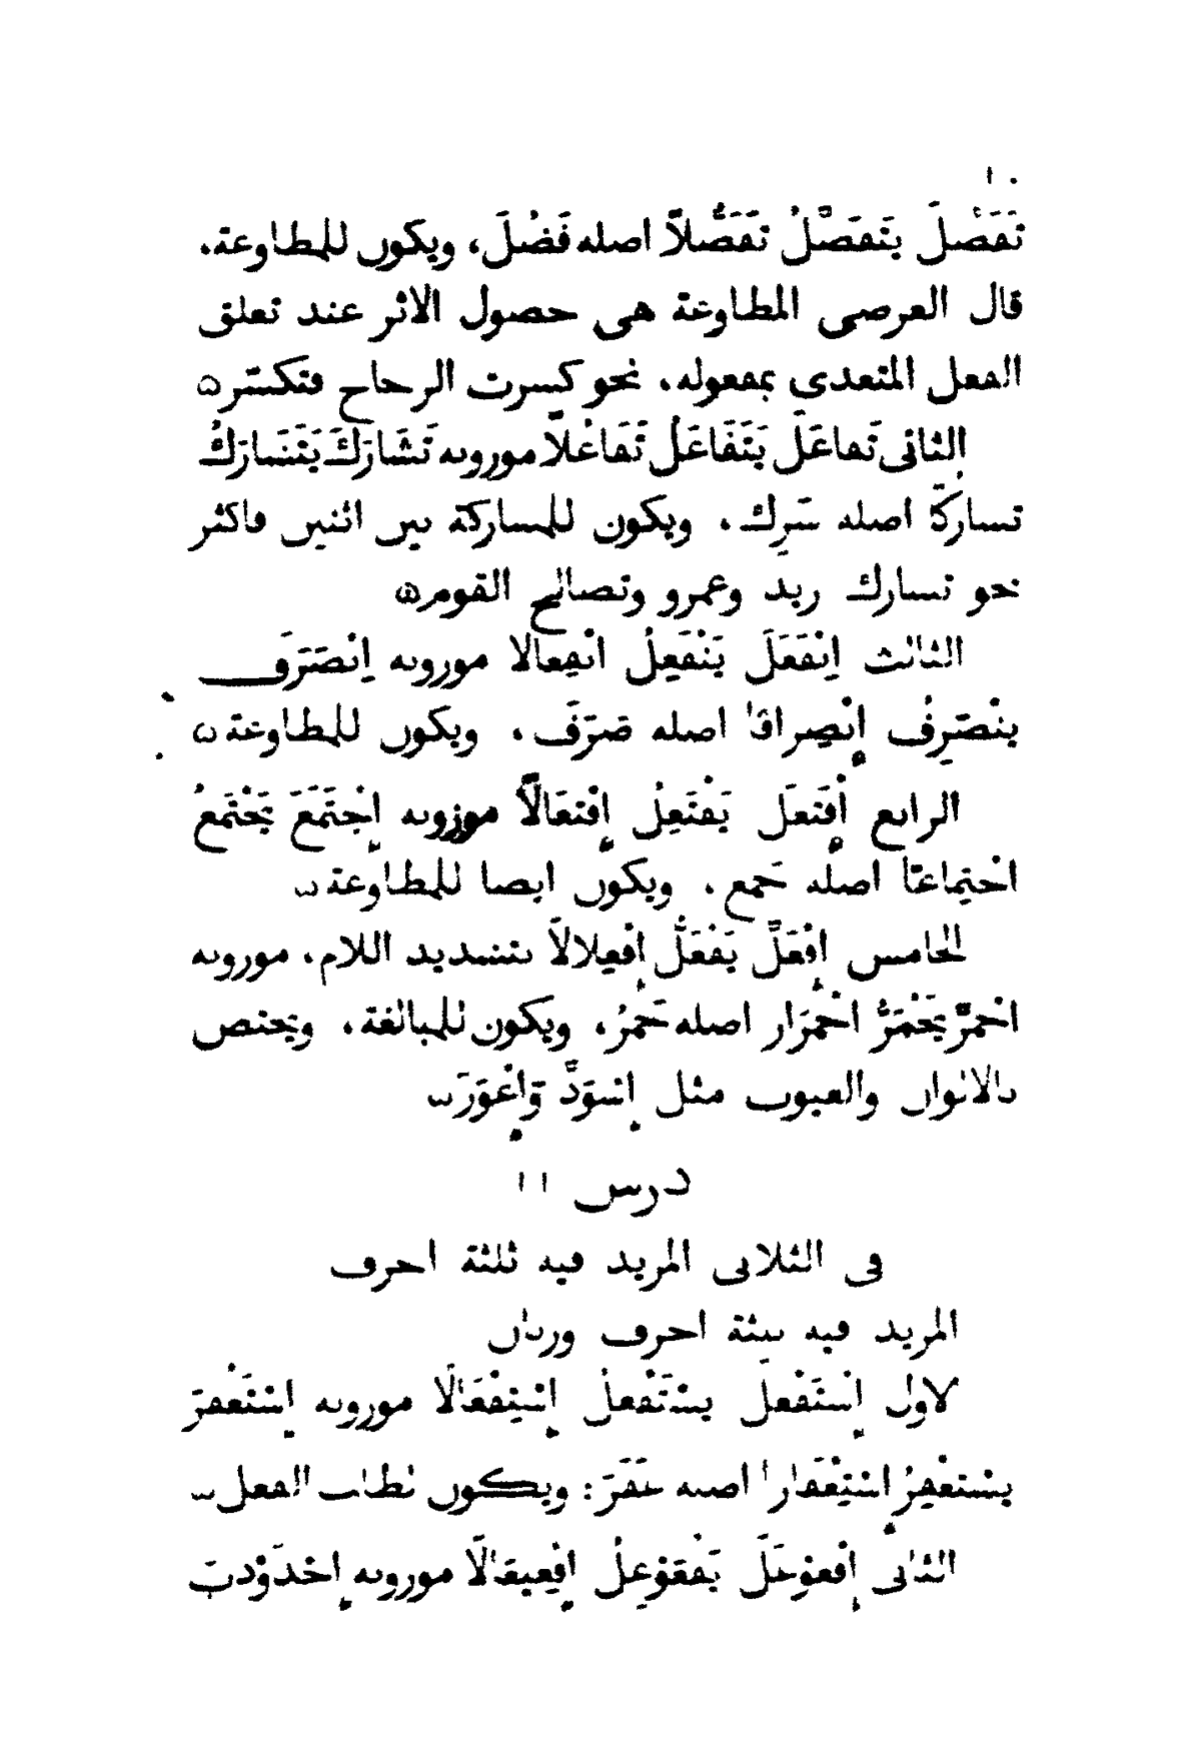 ١٠
تَفَضَّلَ يَتَفَضَّلُ تَفَضُّلاً اصله فَضُلَ، ويكون للمطاوعة.
قال العرضي المطاوعة هي حصول الاثر عند تعلق
الفعل المتعدى بمفعوله. نحو كسرت الزجاج فتكسّر
الثانى تَفاعَلَ يَتَفَاعَلُ تَفَاعُلاً موزونه تَشَارَكَ يَتَشَارَكُ
تشاركًا اصله شَرِك. ويكون للمشاركة بين اثنين فاكثر
نحو تشارك زيد وعمرو وتصالح القوم
الثالث اِنْفَعَلَ يَنْفَعِلُ انفِعالا موزونه اِنْصَرَفَ
ينْصَرِفُ إنْصِرافا اصله صَرَفَ. ويكون للمطاوعة
الرابع إفْتَعَلَ يَفْتَعِلُ إفْتِعَالاً موزونه إجْتَمَعَ يَجْتَمِعُ
اجْتِماعًا اصله جَمع. ويكون ايضا للمطاوعة
الخامس إفْعَلَّ يَفْعَلُّ إفْعِلالاً بتشديد اللام. موزونه
احْمَرَّ يَحْمَرُّ احْمِرَار اصله حَمُرَ. ويكون للمبالغة. ويختص
بالالوان والعيوب مثل إسْوَدَّ وَإعْوَرَّ
درس ١١
فى الثلاثى المزيد فيه ثلثة احرف
المزيد فيه ثلثة احرف وزنان
الاول إسْتَفْعلَ يسْتَفْعلُ إسْتِفْعَالًا موزونه إسْتَغْفرَ
يسْتغْفِرُ اسْتِغْفَارا اصله غَفَرَ: ويكون لطلب الفعل
الثانى إفْعوْعَلَ يَفْعَوْعِلُ إفْعِيعَالًا موزونه إحْدَوْدبَ